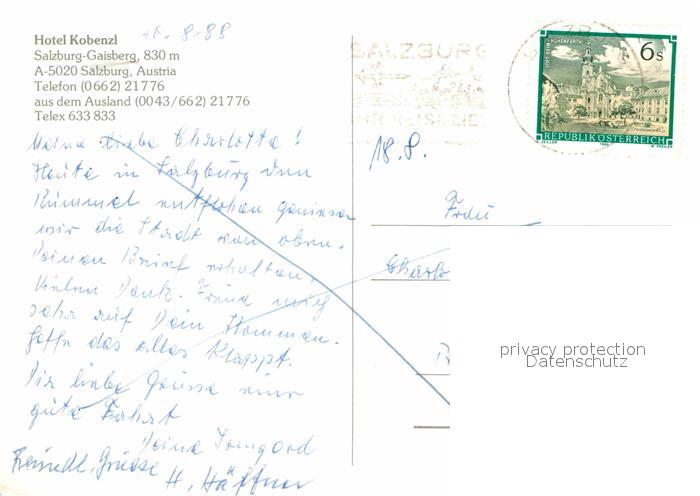 Hotel Kobenzl
Salzburg-Gaisberg, 830 m
A-5020 Salzburg, Austria
Telefon (0662) 21776
aus dem Ausland (0043/662) 21776
Telex 633 833
8.88
Meine liebe Charlotte!
Heute in Salzburg den
Rümmel entflohen geniesen
wir die Stadt von oben.
Deinen Brief erhalten,
Vielen Dank. Freue mich
sehr auf Dein Kommen.
Hoffe das alles klappt.
Dir liebe Grüsse eine
gute Fahrt
Deine Irmgard
Freundl. Grüsse
H. Häffner
SALZBURG
IHR REISEZIEL
STIFT STEIN HOHENFURTH
6 S
REPUBLIK ÖSTERREICH
18.8.
Frau
Charlo
privacy protection
Datenschutz